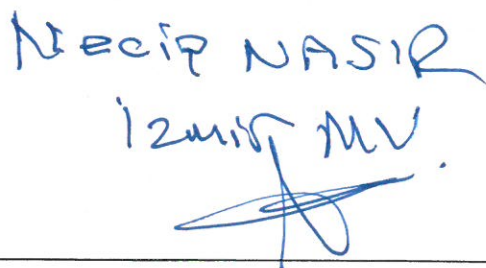 Necip NASIR
İzmir MV.